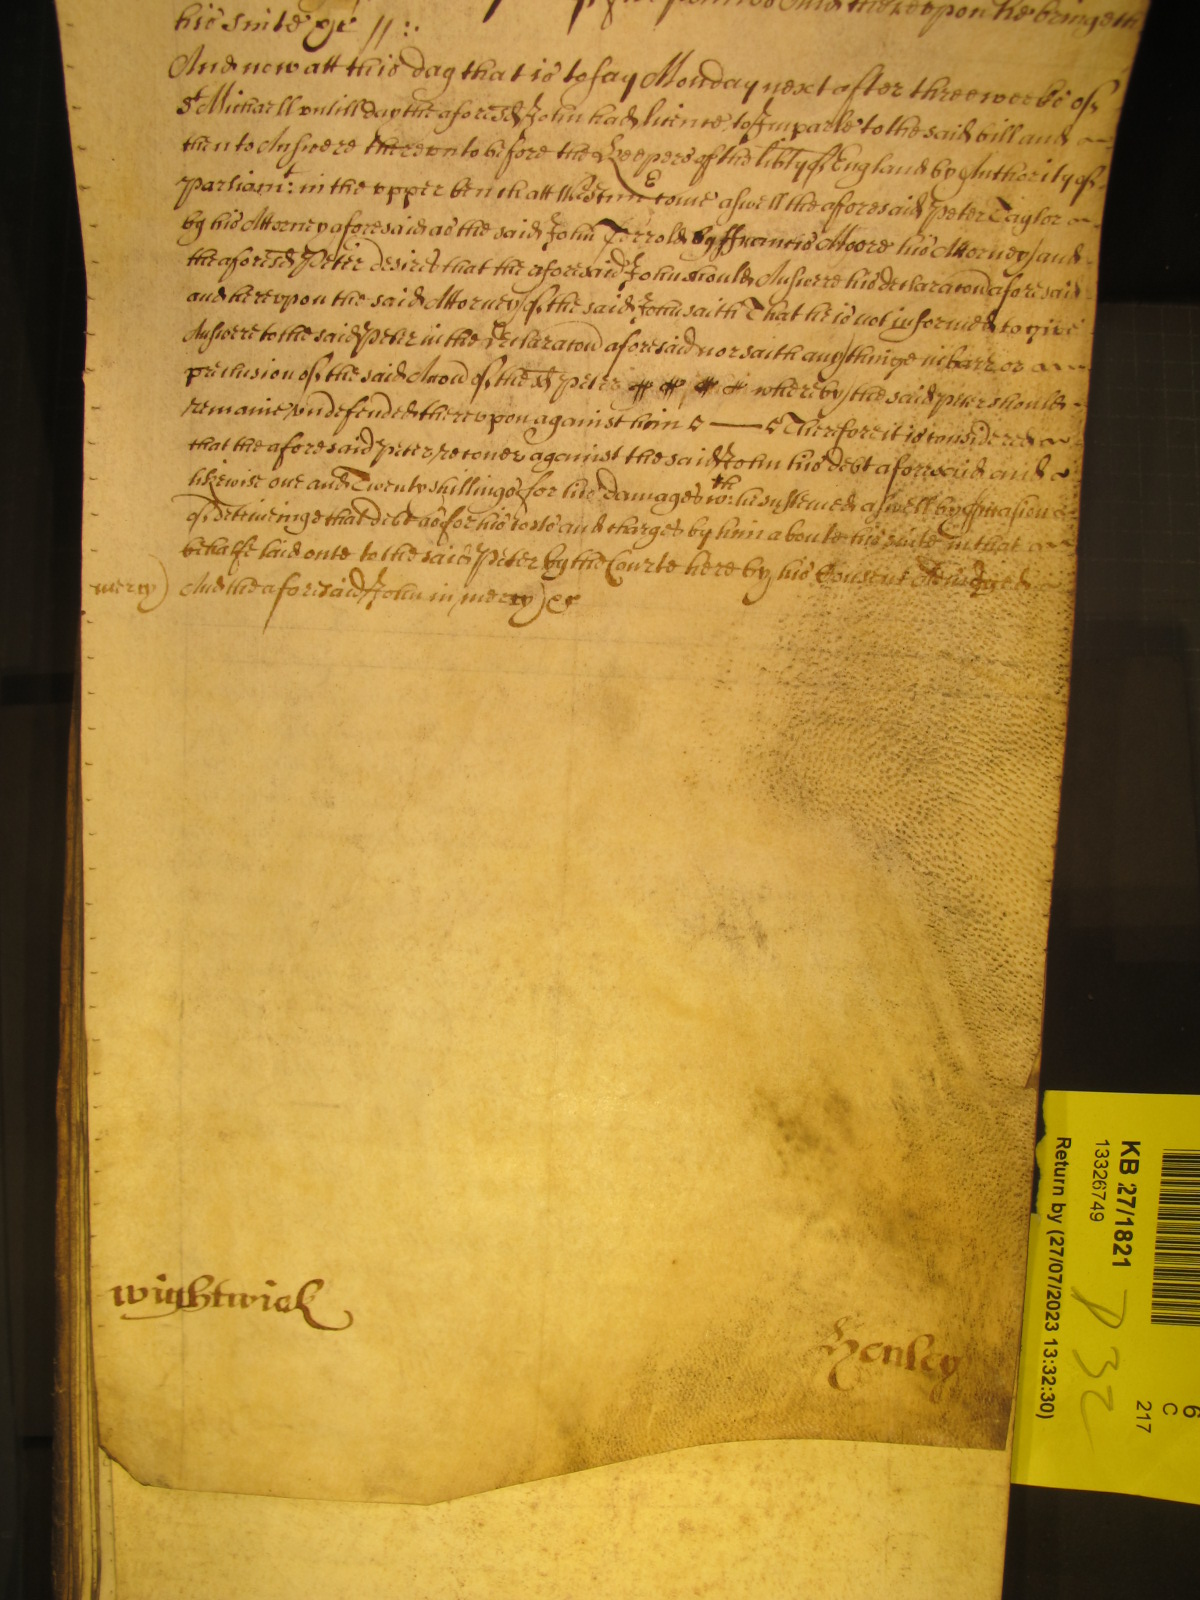 thereupon he bringeth
his suite &c // :.
And now att this day that is to say Monday next after three weeks of
St Michaell untill day the aforesd John had licence to Imparle to the said bill and
then to Answere thereunto before the Keepers of the libty of England by Authority of
Parliamt: in the upper bench att Westmr come aswell the aforesaid Peter Taylor
by his Attorney aforesaid as the said John by ffrancis Moore his Attorney and
the aforesd Peter desires that the aforesaid John should Answere his declaracon aforesaid
and hereupon the said Attorney of the said John saith That he is not informed to give
Answere to the said Peter in the declaracon aforesaid nor saith any thinge in barr or
preclusion of the said Accon of the sd Peter whereby the said Peter should
remaine undefended thereupon against him Therefore it is considered
that the aforesaid Peter recover against the said John his debt aforesaid and
likewise one and Twenty shillings for his damages wch he susteined aswell by occasion
of deteininge that debt as for his costs and charges by him aboute his suite in that
behalfe laid oute to the said Peter by the Courte here by his Consent Adiudged
mercy) And the aforesaid John in mercy) &c
wightwick
Henley
KB 27/1821
13326749
Return by (27/07/2023 13:32:30)
P 32
6
C
217